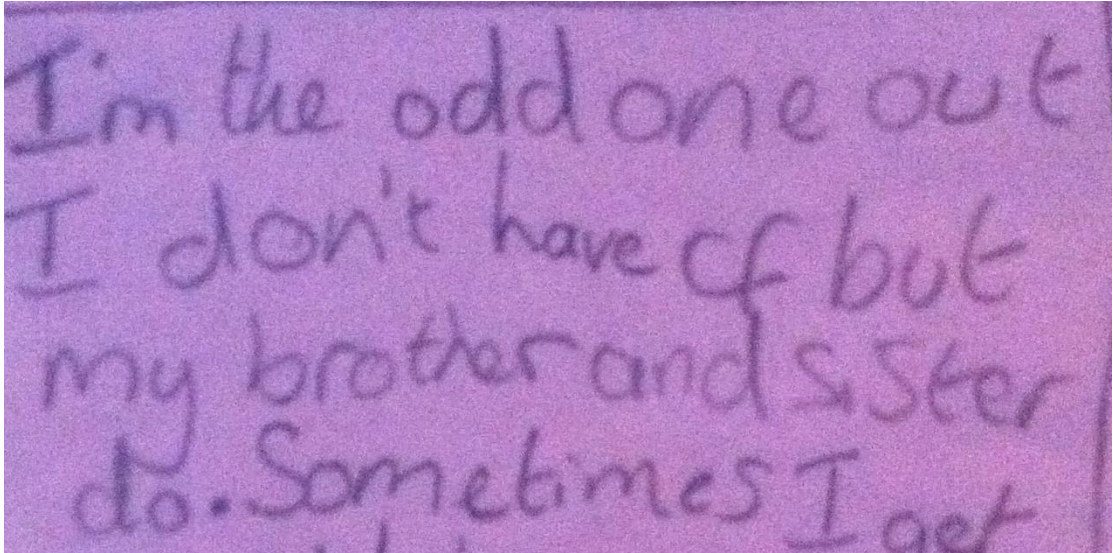 I'm the odd one out
I don't have cf but
my brother and sister
do. Sometimes I get